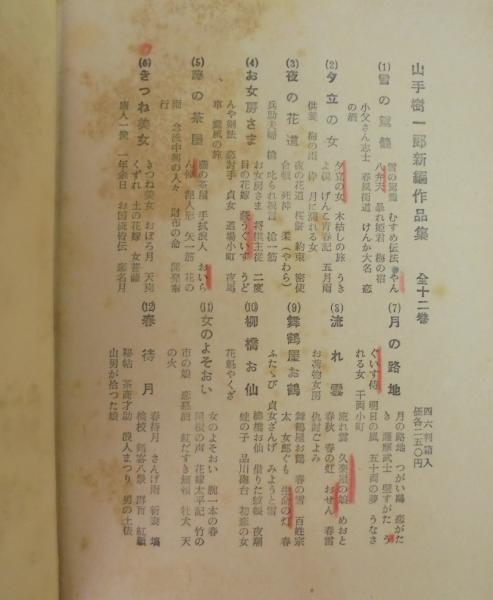 山手樹一郎新編作品集　全十二巻
四六判箱入
価各二五〇円
(1) 雪の駕籠
雪の駕籠　むすめ伝法　やん
八弁天　暴れ姫君　梅の宿
小父さん志士　春風街道　けんか大名　恋
の酒
(2) 夕立の女
夕立の女　木枯しの旅　うき
よ硯　げんこ青春記　五月雨
供養　梅の雨　枠　月に濡れる女
(3) 夜の花道
夜の花道　桜餅　約束　密使
合羽　死神　柔（やわら）
兵助夫婦　槍　叱られ祝言　槍一筋
(4) お女房さま
お女房さま　将棋主従　二度
目の花嫁　藪うぐいす　うど
んや剣法　恋討手　貞女　道場小町　夜馬
車　薫風の旅
(5) 霧の茶屋
霧の茶屋　手拭浪人　おいら
ん俥　浪人形　矢一筋　花の
雨　念流中興の人々　財布の命　開発奉
行
(6) きつね美女
きつね美女　おぼろ月　天狗
くずれ　土の花嫁　女菩薩
唐人一驚　一年余日　お国流術伝　恋名月
(7) 月の路地
月の路地　つがい鴎　恋がた
き　薩摩武士　壁すがた　う
ぐいす侍　明日の風　五十両の夢　うなさ
れる女　千両小町
(8) 流れ雲
流れ雲　久楽屋の娘　めおと
春秋　春の虹　おせん　春雷
お荷物女房　仇討ごよみ
(9) 舞鶴屋お鶴
舞鶴屋お鶴　春の雪　百姓宗
太　女郎ぐも　生命の灯　春
ふたゝび　貞女ざんげ　みようと雪
(10) 柳橋お仙
柳橋お仙　借りた紋帳　夜潮
蛙の子　品川砲台　初恋の女
花魁やくざ
(11) 女のよそおい
女のよそおい　腕一本の春
屋根の声　花嫁太平記　竹の
市の娘　恋慕酒　虹だすき無頼　牡犬　天
の火
(12) 春待月
春待月　さんげ雨　新妻　塙
検校　剣客八景　群盲　紅顔
秘帖　茶商才助　浪人まつり　男の土俵
山男が拾つた娘